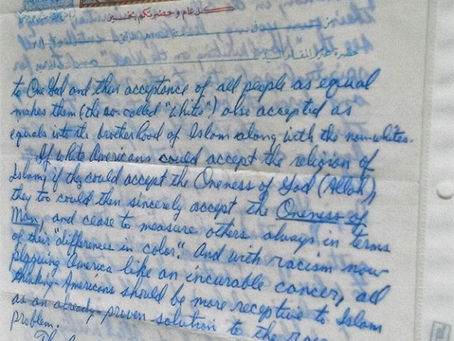 كل عام و حضرتكم بخير
to One God and their acceptance of all people as equal
makes them (the so called "Whites") also accepted as
equals into the brotherhood of Islam along with the non-whites.
If white Americans could accept the religion of
Islam, if they could accept the Oneness of God (Allah)
they too could then sincerely accept the Oneness of
Men, and cease to measure others always in terms
of their "difference in color". And with racism now
plaguing America like an incurable cancer, all
thinking Americans should be more receptive to Islam
as an already proven solution to the race
problem.